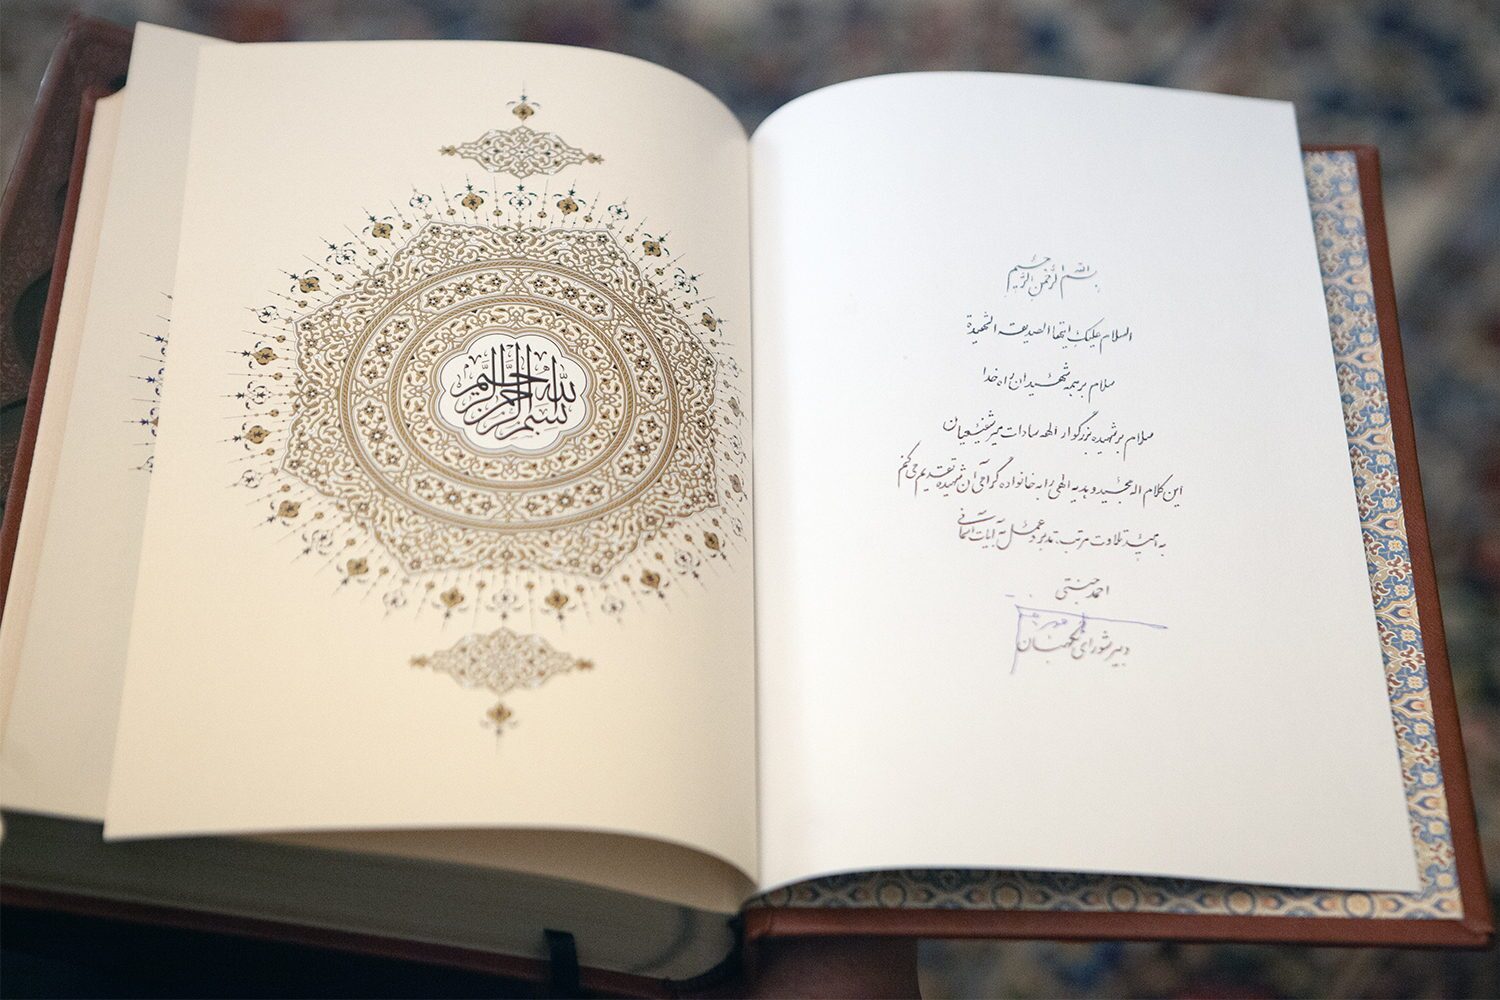 بسم الله الرحمن الرحیم
بسم الله الرحمن الرحیم
السلام علیک ایتها الصدیقه الشهیدة
سلام بر همه شهیدان راه خدا
سلام بر شهیده بزرگوار الهه سادات میرشفیعیان
این کلام اله مجید و هدیه الهی را به خانواده گرامی آن شهیده تقدیم می کنم
به امید تلاوت مرتب، تدبر و عمل به آیات آسمانی
احمد جنتی
دبیر شورای نگهبان